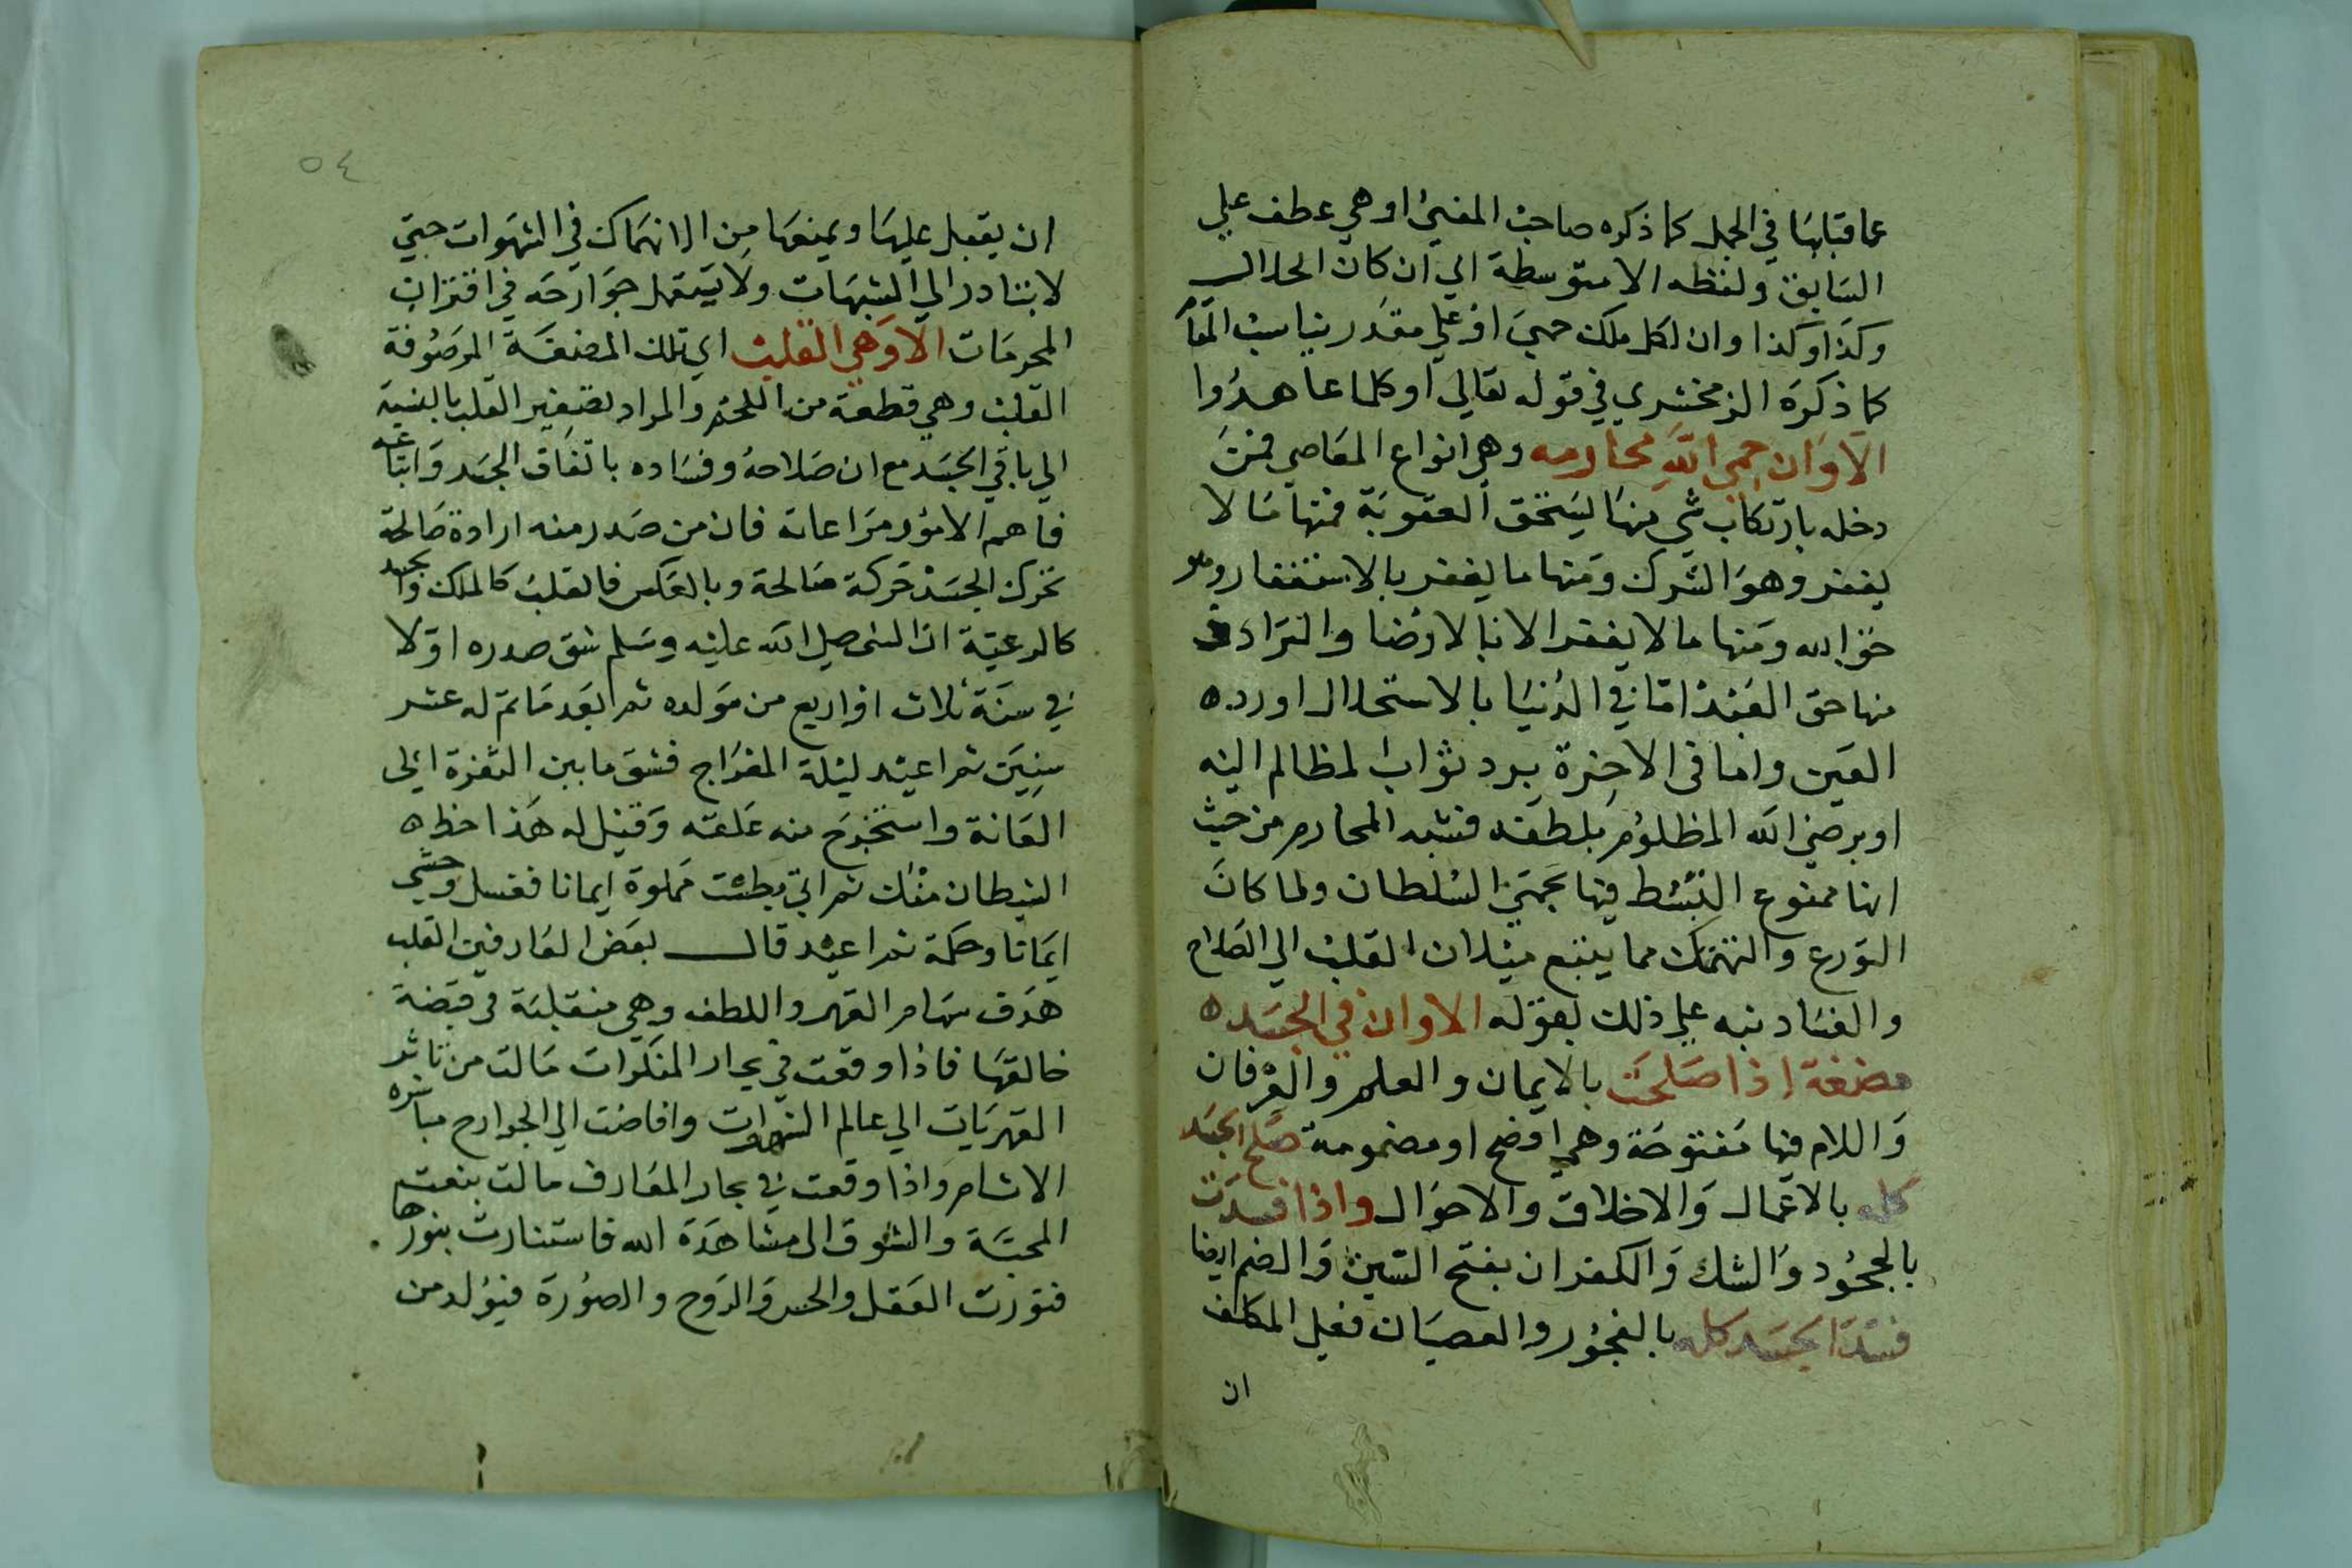 عما قبلها في الجمل كما ذكره صاحب المغني او هي عطف علي
السابق ولفظه الا متوسطة الي ان كان الحلال
وكذا وكذا وان لكل ملك حمي او علي مقدر يناسب المقا
كما ذكره الزمخشري في قوله تعالي اوكلما عاهدوا
الا وان حمي الله محارمه وهي انواع المعاصي فمن
دخله بارتكاب شي منها ليستحق العقوبة فمنها ما لا
يغفر وهو الشرك ومنها ما يغفر بالاستغفار وهو
حق الله ومنها ما لا يغفر الا بالارضا والتراد
منها حق العبد اما في الدنيا بالاستحلال او رد
العين واما في الاخرة برد ثواب المظالم اليه
او يرضي الله المظلوم بلطفه فشبه المحارم من حيث
انها ممنوع التبسط فيها بحمي السلطان ولما كان
التورع والتهتك مما يتبع ميلان القلب الي الصلاح
والفساد نبه علي ذلك بقوله الا وان في الجسد
مضغة اذا صلحت بالايمان والعلم والعرفان
واللام فيها مفتوحة وهي افصح او مضمومة صلح الجسد
كله بالاعمال والاخلاق والاحوال واذا فسدت
بالجحود والشك والكفران بفتح السين والضم ايضا
فسد الجسد كله بالفجور والعصيان فعلي المكلف
ان
٥٤
ان يقبل عليها ويمنعها من الانهماك في الشهوات حتي
لا يتبادر الي الشبهات ولا يستعمل جوارحه في اقتراب
المحرمات الا وهي القلب اي تلك المضغة الموصوفة
القلب وهي قطعة من اللحم والمراد تصغير القلب بالنسبة
الي باقي الجسد مع ان صلاحه وفساده باتفاق الجسد واتباعه
فاهم الامور مراعاته فان من صدر منه ارادة صالحة
تحرك الجسد حركة صالحة وبالعكس فالقلب كالملك والجسد
كالرعية ان النبي صلي الله عليه وسلم شق صدره اولا
في سنة ثلاث او اربع من مولده ثم بعد ما تم له عشر
سنين ثم اعيد ليلة المعراج فشق ما بين الثغرة الي
العانة واستخرج منه علقته وقيل له هذا حظ
الشيطان منك ثم اتي بطست مملوة ايمانا فغسل وحشي
ايمانا وحكمة ثم اعيد قال بعض العارفين القلب
هدف سهام القهر واللطف وهي منقلبة في قبضة
خالقها فاذا وقعت في بحار المنكرات مالت من تاثير
القهريات الي عالم الشهوات وافاضت الي الجوارح مباشرة
الاثام واذا وقعت في بحار المعارف مالت بنعت
المحبة والشوق الي مشاهدة الله فاستنارت بنورها
فنورت العقل والحس والروح والصورة فيولد من